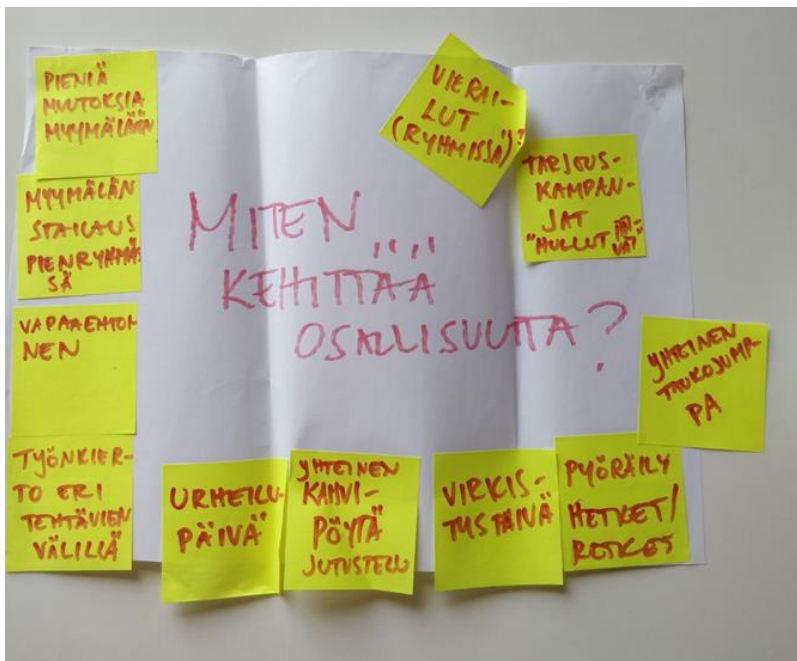 PIENIÄ
MUUTOKSIA
MYYMÄLÄÄN
MYYMÄLÄN
STAILAUS
PIENRYHMÄS
SÄ
VAPAAEHTOI
NEN
TYÖNKIER-
TO ERI
TEHTÄVIEN
VÄLILLÄ
MITEN
KEHITTÄÄ
OSALLISUUTTA?
VIERAI-
LUT
(RYHMISSÄ)?
TARJOUS-
KAMPAN-
JAT
"HULLUT
YHTEINEN
TAUKOJUMP-
PA
URHEILU
PÄIVÄ
YHTEINEN
KAHVI-
PÖYTÄ
JUTUSTELU
VIRKIS-
TUSPÄIVÄ
PYÖRÄILY
HETKET/
RETKET